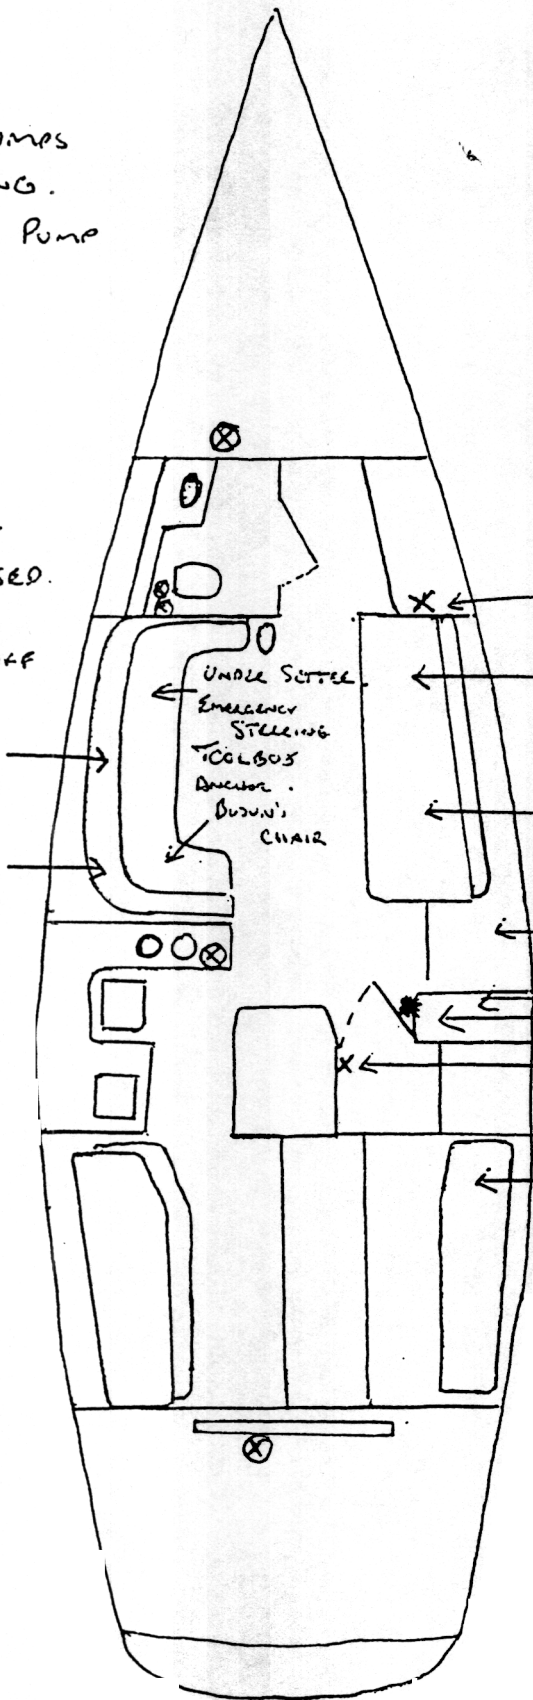 PUMP
UNDER SETTEE
EMERGENCY
STEERING
TOOLBOX
ANCHOR.
BOSUN'S
CHAIR